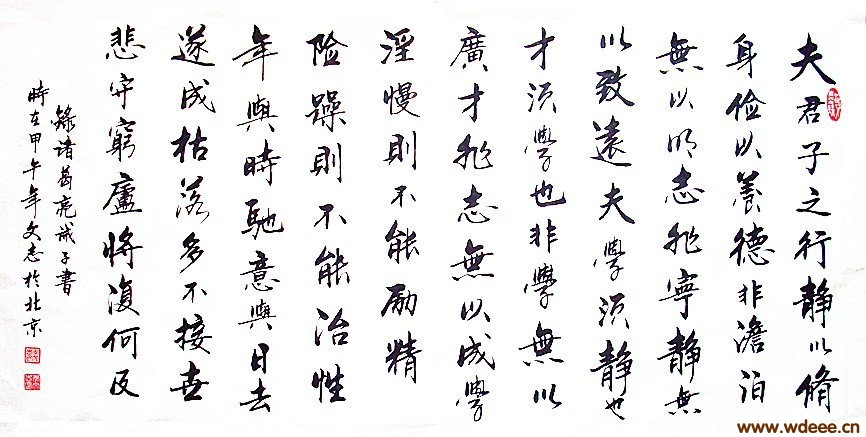 夫君子之行静以脩
身俭以養德非澹泊
無以明志非寧静無
以致遠夫學須静也
才须學也非學無以
廣才非志無以成學
淫慢則不能励精
险躁則不能治性
年與時馳意與日去
遂成枯落多不接世
悲守窮廬將復何及
錄诸葛亮诫子書
時在甲午年文志於北京
www.wdeee.cn